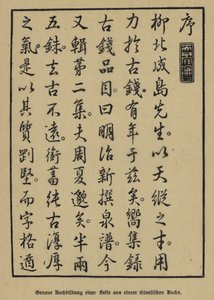 序
柳北成島先生以天縱之才用
力於古錢有年于茲矣嚮集錄
古錢品目曰明治新撰泉譜今
又輯第二集夫周夏邈矣半兩
五銖去古不遠銜蓄純古淳厚
之氣是以其質剛堅而字格
Genaue Nachbildung einer Seite aus einem chinesischen Buche.